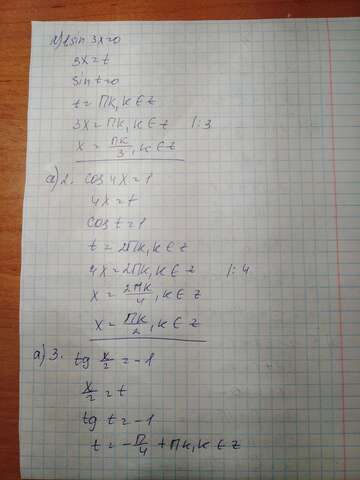 а) 1. sin 3x=0
3x=t
sin t=0
t=πk, k∈z
3x=πk, k∈z |:3
x= πk/3, k∈z
а) 2. cos 4x=1
4x=t
cos t=1
t=2πk, k∈z
4x=2πk, k∈z |:4
x= 2πk/4, k∈z
x= πk/2, k∈z
а) 3. tg x/2=-1
x/2=t
tg t=-1
t=-π/4+πk, k∈z